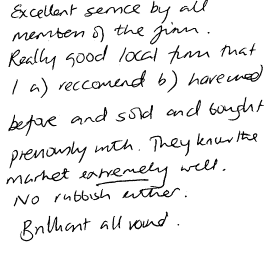 Excellent service by all
members of the firm.
Really good local firm that
I a) reccomend b) have used
before and sold and bought
previously with. They know the
market extremely well.
No rubbish either.
Brilliant all round.